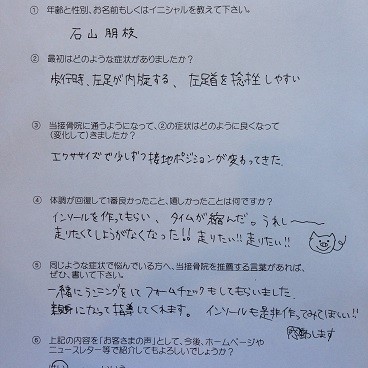 ① 年齢と性別、お名前もしくはイニシャルを教えて下さい。
石山 朋枝
② 最初はどのような症状がありましたか？
歩行時、左足が内旋する、左足首を捻挫しやすい
③ 当接骨院に通うようになって、②の症状はどのように良くなって
（変化して）きましたか？
エクササイズで少しずつ接地ポジションが変わってきた。
④ 体調が回復して1番良かったこと、嬉しかったことは何ですか？
インソールを作ってもらい、タイムが縮んだ。うれし〜〜
走りたくてしょうがなくなった!! 走りたい!! 走りたい!!
⑤ 同じような症状で悩んでいる方へ、当接骨院を推薦する言葉があれば、
ぜひ、書いて下さい。
一緒にランニングをしてフォームチェックもしてもらいました。
親身になって指導してくれます。 インソールも是非作ってみてほしい!!
感動します
⑥ 上記の内容を「お客さまの声」として、今後、ホームページや
ニュースレター等で紹介してもよろしいでしょうか？